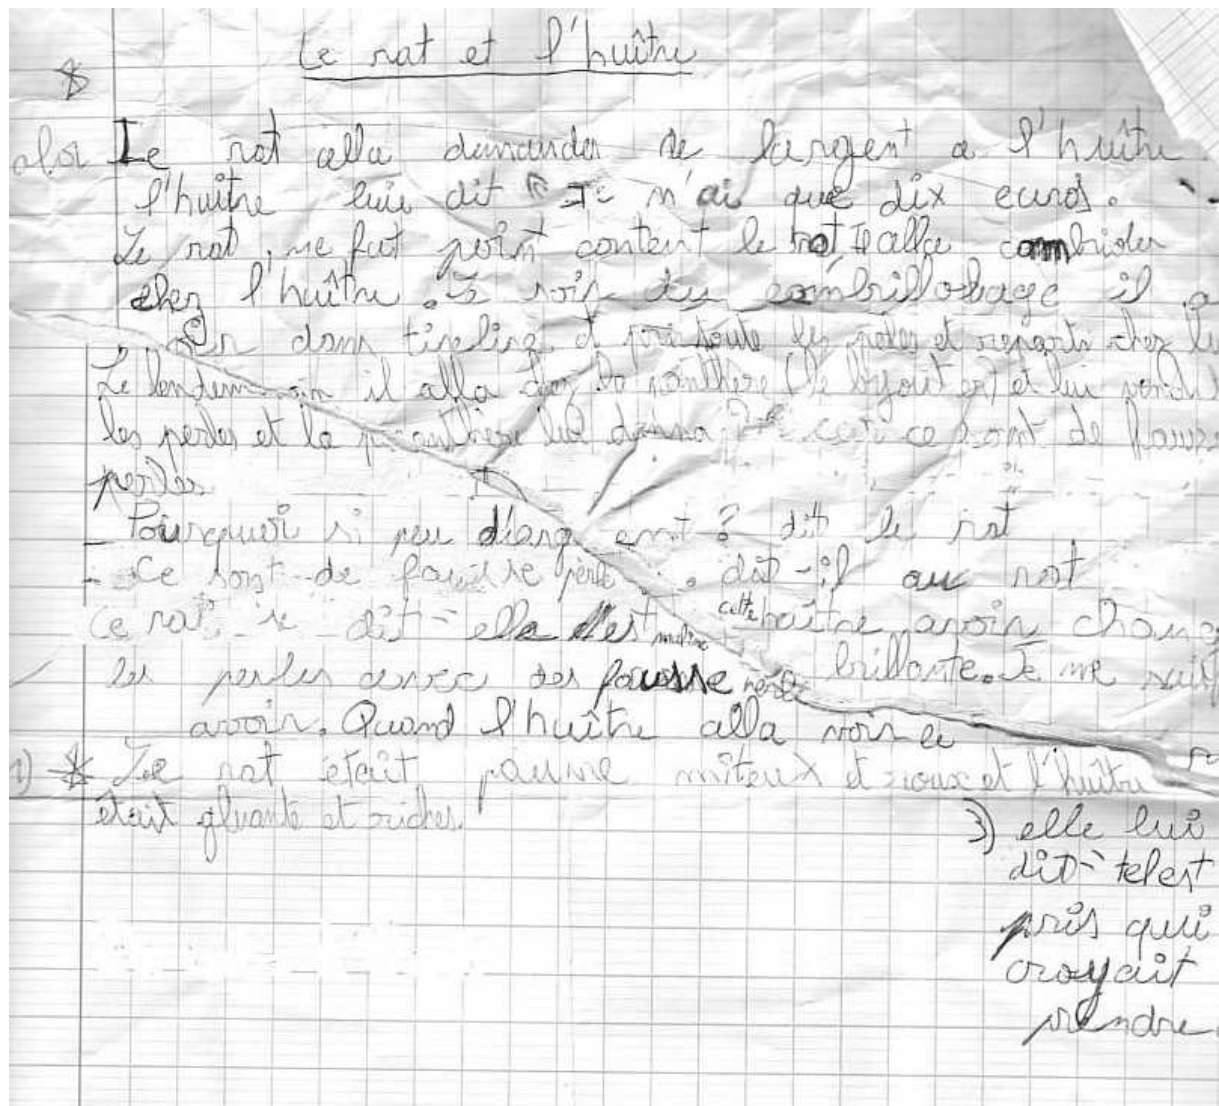 Le rat et l'huître
alor Le rat alla demander de largent a l'huître
l'huître luie dit Je n'ai que dix euros.
Le rat, ne fut point content le rat alla combrider
chez l'huître. Le soir du combrillobage il a
dans et repartit chez lu
Le lendemain il alla chez la panthère (le byoutier) et lui vendit
les perles et la penthère lui donna car ce sont de fausse
perles
_ Pourquoi si peu d'argent ? dit le rat
- Ce sont de fausse perle. dit-il au rat
Le rat, se dit-elle est maline cette huître avoir chang
les perles avec des fausse perle brillante. Je me suis
avoir. Quand l'huître alla voir le
1) Le rat était pauvre miteux et roux et l'huître
était gluante et riche.
3) elle lui
dit- telest
pris qui
croyait
prendre.